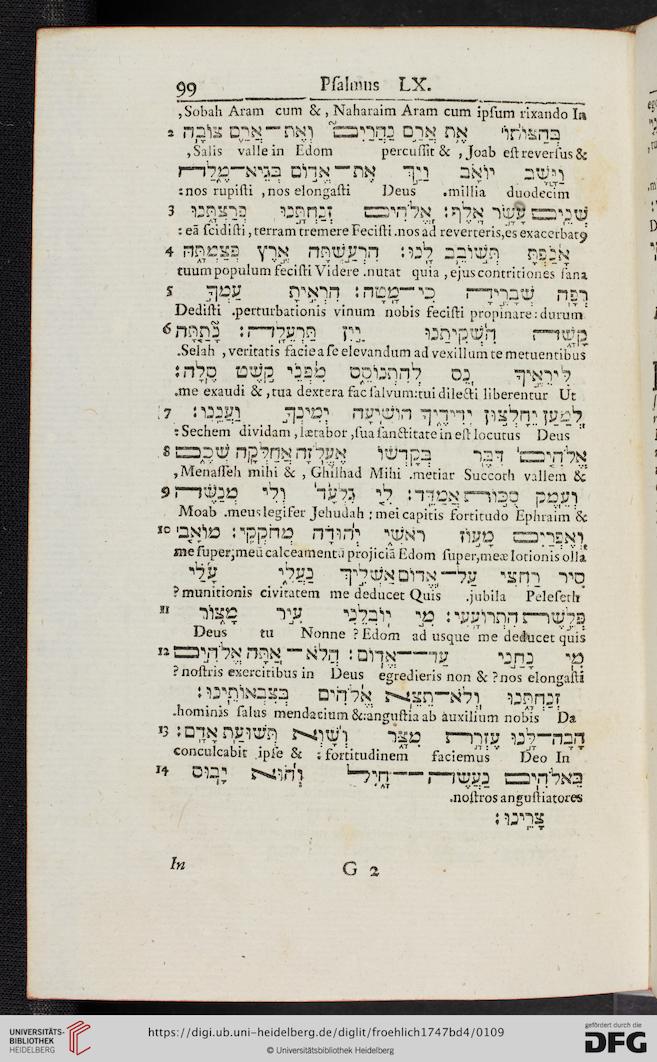 99 Pſalmus LX.
,Sobah Aram cum & , Naharaim Aram cum ipſum rixando In
2 בְּהַצּוֹתוֹ אֶת אֲרַם נַהֲרַיִם וְאֶת־אֲרַם צוֹבָה
,Salis valle in Edom percuſſit & , Joab eſt reverſus &
וַיָּשָׁב יוֹאָב וַיַּךְ אֶת־אֱדוֹם בְּגֵיא־מֶלַח
:nos rupiſti , nos elongaſti Deus .millia duodecim
3 שְׁנֵים עָשָׂר אָלֶף: אֱלֹהִים זְנַחְתָּנוּ פְרַצְתָּנוּ
: eã ſcidiſti , terram tremere Feciſti .nos ad reverteris,es exacerbatꝰ
4 אָנַפְתָּ תְּשׁוֹבֵב לָנוּ: הִרְעַשְׁתָּה אֶרֶץ פְּצַמְתָּהּ
tuum populum feciſti Videre .nutat quia , ejus contritiones ſana
5 רְפָה שְׁבָרֶיהָ כִי־מָטָה: הִרְאִיתָ עַמְּךָ
Dediſti .perturbationis vinum nobis feciſti propinare: durum
6 קָשָׁה הִשְׁקִיתָנוּ יַיִן תַּרְעֵלָה: נָתַתָּה
.Selah , veritatis facie a ſe elevandum ad vexillum te metuentibus
לִּירֵאֶיךָ נֵּס לְהִתְנוֹסֵס מִפְּנֵי קֹשֶׁט סֶלָה:
.me exaudi & ,tua dextera fac ſalvum:tui dilecti liberentur Ut
7 לְמַעַן יֵחָלְצוּן יְדִידֶיךָ הוֹשִׁיעָה יְמִינְךָ וַעֲנֵנוּ:
: Sechem dividam , lætabor ,ſua ſanctitate in eſt locutus Deus
8 אֱלֹהִים דִּבֶּר בְּקָדְשׁוֹ אֶעְלֹזָה אֲחַלְּקָה שְׁכֶם
,Menaſſeh mihi & , Ghilhad Mihi .metiar Succoth vallem &
9 וְעֵמֶק סֻכּוֹת אֲמַדֵּד: לִי גִלְעָד וְלִי מְנַשֶּׁה
Moab .meus legifer Jehudah ; mei capitis fortitudo Ephraim &
10 וְאֶפְרַיִם מָעוֹז רֹאשִׁי יְהוּדָה מְחֹקְקִי: מוֹאָב
me ſuper;meũ calceamentũ projiciã Edom ſuper,meæ lotionis olla
סִיר רַחְצִי עַל־אֱדוֹם אַשְׁלִיךְ נַעֲלִי עָלַי
? munitionis civitatem me deducet Quis .jubila Peleſeth
11 פְּלֶשֶׁת הִתְרוֹעָעִי: מִי יוֹבִלֵנִי עִיר מָצוֹר
Deus tu Nonne ? Edom ad usque me deducet quis
12 מִי נָחַנִי עַד־אֱדוֹם: הֲלֹא־אַתָּה אֱלֹהִים
? noſtris exercitibus in Deus egredieris non & ? nos elongaſti
זְנַחְתָּנוּ וְלֹא־תֵצֵא אֱלֹהִים בְּצִבְאוֹתֵינוּ:
.hominis ſalus mendacium &:anguſtia ab auxilium nobis Da
13 הָבָה־לָּנוּ עֶזְרָת מִצָּר וְשָׁוְא תְּשׁוּעַת אָדָם:
conculcabit ipſe & : fortitudinem faciemus Deo In
14 בֵּאלֹהִים נַעֲשֶׂה־חָיִל וְהוּא יָבוּס
.noſtros anguſtiatores
צָרֵינוּ:
In G 2
UNIVERSITÄTS-
BIBLIOTHEK
HEIDELBERG
https://digi.ub.uni-heidelberg.de/diglit/froehlich1747bd4/0109
© Universitätsbibliothek Heidelberg
gefördert durch die
DFG